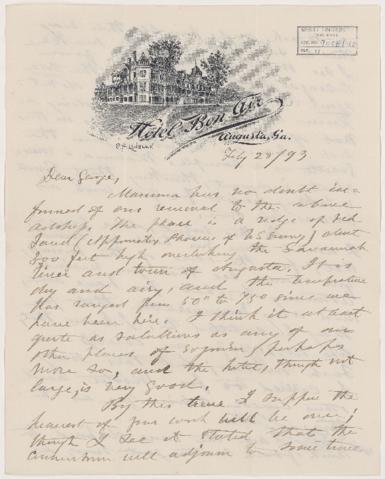 Hotel Bon Air
Augusta, Ga.
Feby 28/93
Dear George,
Mamma has no doubt in-
formed of our removal to the above
The place is a ridge of red
Sand ( ) about
feet high overlooking the Savannah
River and town of Augusta. It is
dry and airy, and the temperature
has ranged from 50° to 75° since we
have been here. I think it at least
quite as salubrious as any of our
other places of sojourn (perhaps
more so), and the hotel, though not
large, is very good.
By this time I suppose the
heaviest of your work will be over;
though I see it stated that the
will adjourn to some time